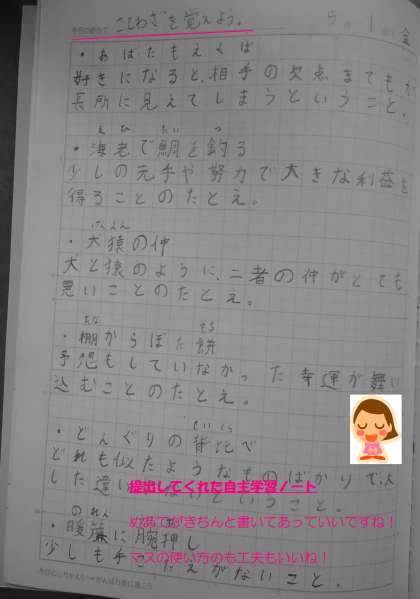 今日のめあて ことわざを覚えよう。
5 1 金
・あばたもえくぼ
好きになると、相手の欠点までもが
長所に見えてしまうということ。
えび たい つ
・海老で鯛を釣る
少しの元手や努力で大きな利益を
得ることのたとえ。
けんえん
・犬猿の仲
犬と猿のように、二者の仲がとても
悪いことのたとえ。
たな もち
・棚からぼた餅
予想もしていなかった幸運が舞い
込むことのたとえ。
せいくら
・どんぐりの背比べ
どれも似たようなものばかりで、大
した違いがないということ。
のれん
・暖簾に腕押し
少しも手ごたえがないこと。
提出してくれた自主学習ノート
めあてがきちんと書いてあっていいですね！
マスの使い方のも工夫もいいね！